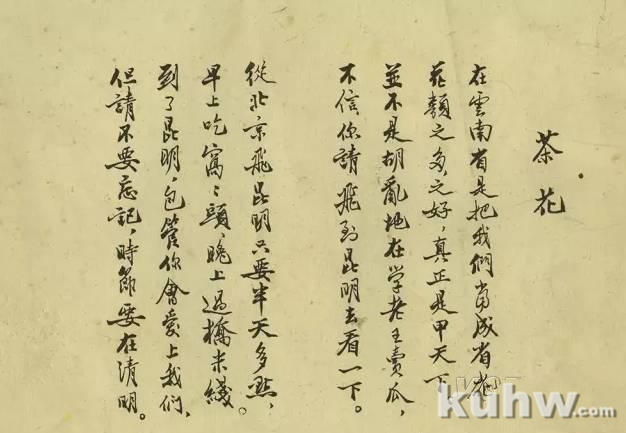 茶花
在雲南省是把我們當成省花
花類之多之好，真正是甲天下
並不是胡亂地在学老王賣瓜，
不信你請飛到昆明去看一下。
從北京飛昆明只要半天多點，
早上吃窩〻頭，晚上過橋米綫。
到了昆明，包管你會愛上我們、
但請不要忘記，時節要在清明。
kuhw.com